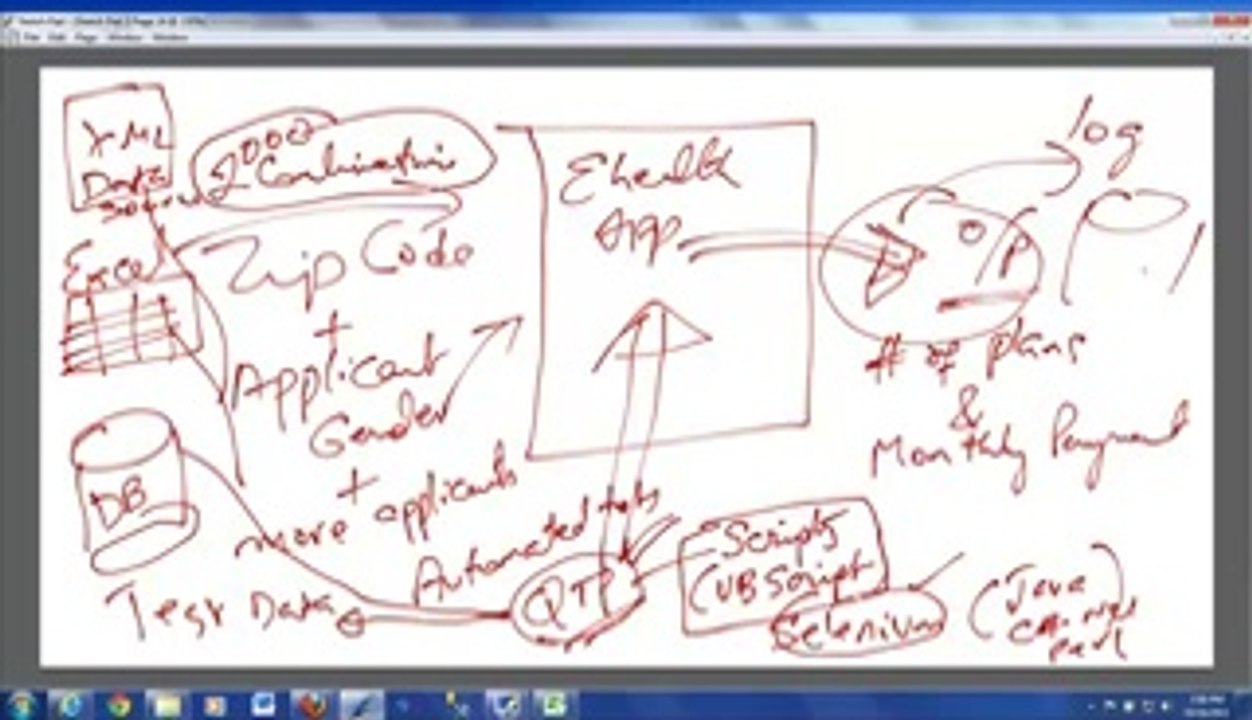 File Edit Page Window Window
XML
Data
Source
2000
Combinations
Excel
Zip Code
+
Applicant
Gender
+
more applicants
DB
Test Data
Ehealth
App
Automated tests
QTP
Scripts
(VBScript
Selenium
(Java
perl
log
O/P
# of plans
&
Monthly Payment